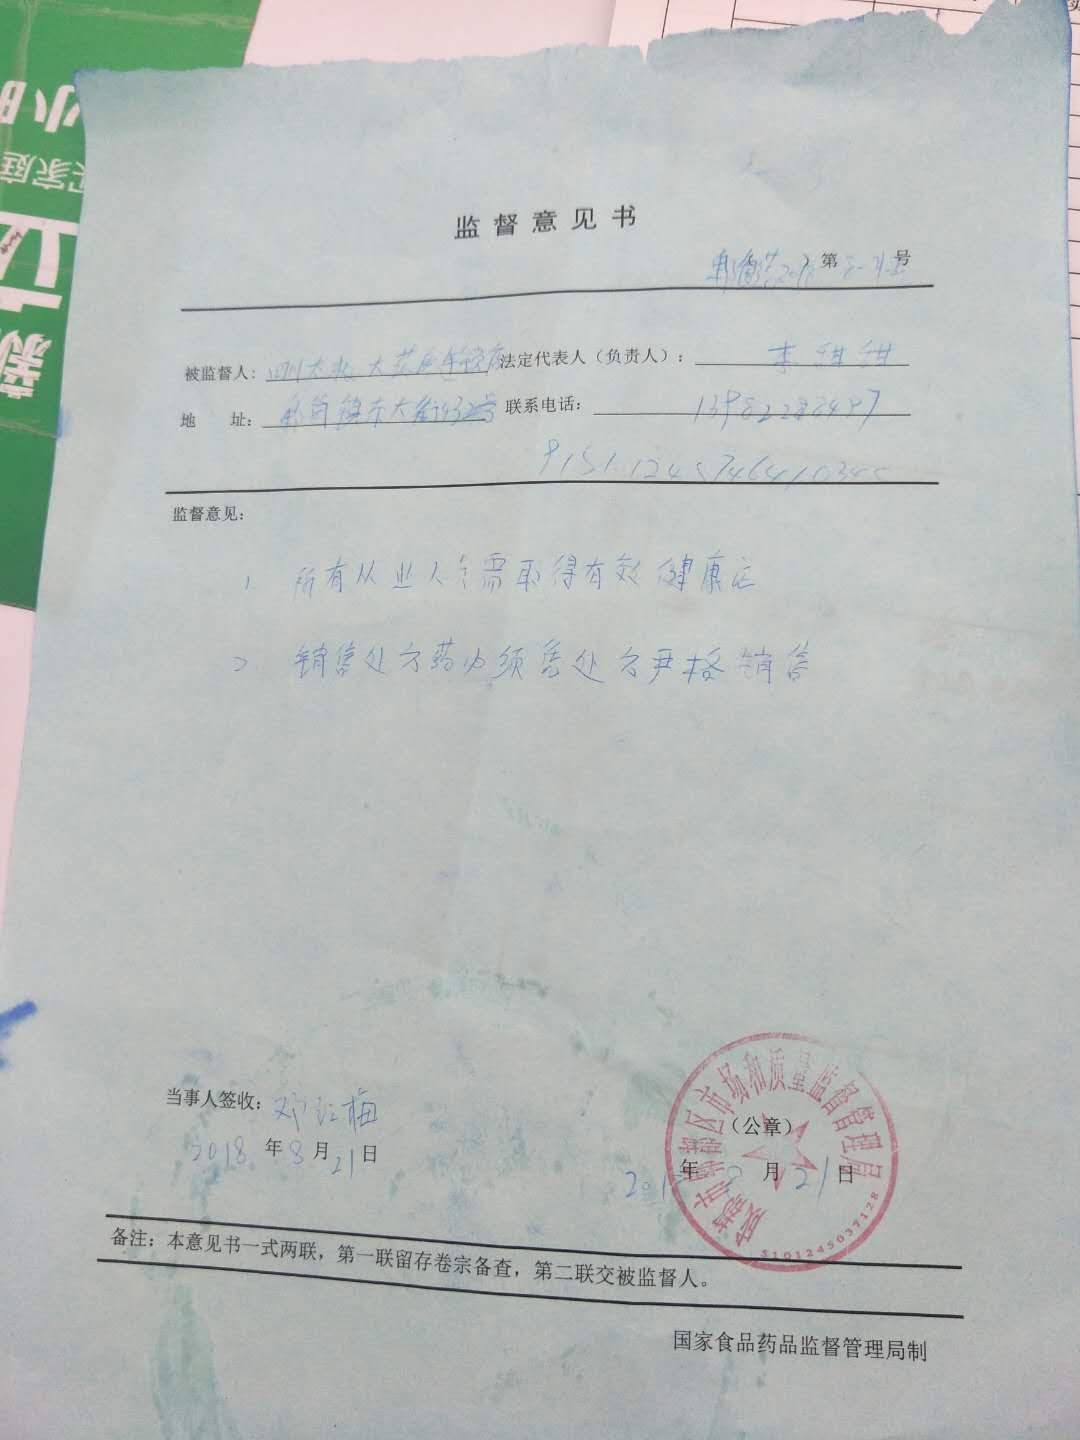 监督意见书
第 号
被监督人: 四川太极大药房连锁店 法定代表人（负责人）: 李甜甜
地 址: 东大街432号 联系电话: 13982288497
监督意见:
1 所有从业人员需取得有效健康证
2 销售处方药必须凭处方严格销售
当事人签收: 邓红梅
（公章）
2018年8月21日
年 月21日
市场和质量监督管理局
5101245037128
备注: 本意见书一式两联，第一联留存卷宗备查，第二联交被监督人。
国家食品药品监督管理局制
家庭
新